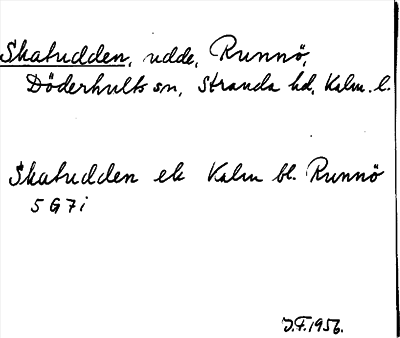 Skatudden, udde, Runnö,
Döderhults sn, Stranda hd, Kalm. l.
Skatudden ek Kalm bl. Runnö
5 G 7 i
J.F. 1956.